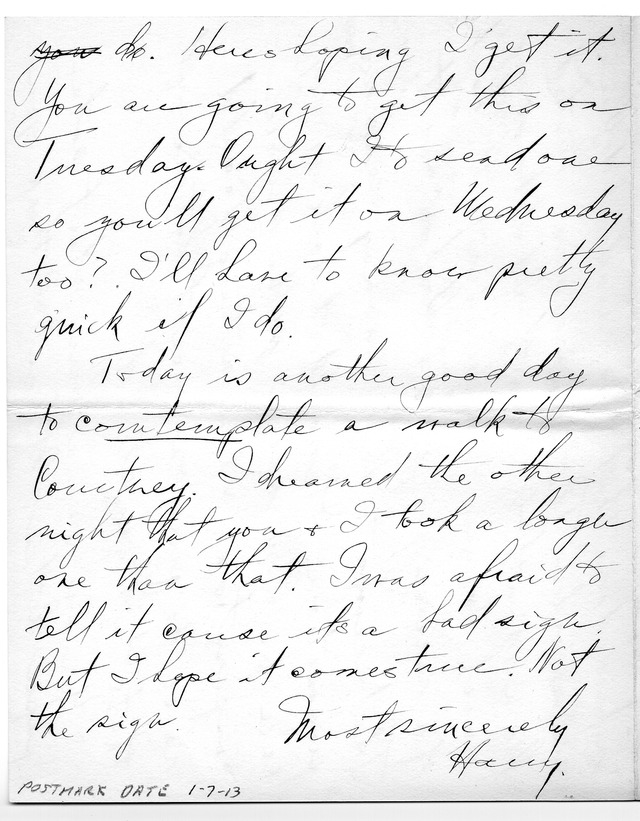 you do. Heres hoping I get it.
You are going to get this on
Tuesday. Ought I to send one
so you'll get it on Wednesday
too? I'll have to know pretty
quick if I do.
Today is another good day
to comtemplate a walk to
Courtney. I dreamed the other
night that you & I took a longer
one than that. I was afraid to
tell it cause its a bad sign.
But I hope it comes true. Not
the sign.
Most sincerely
Harry.
POSTMARK DATE 1-7-13